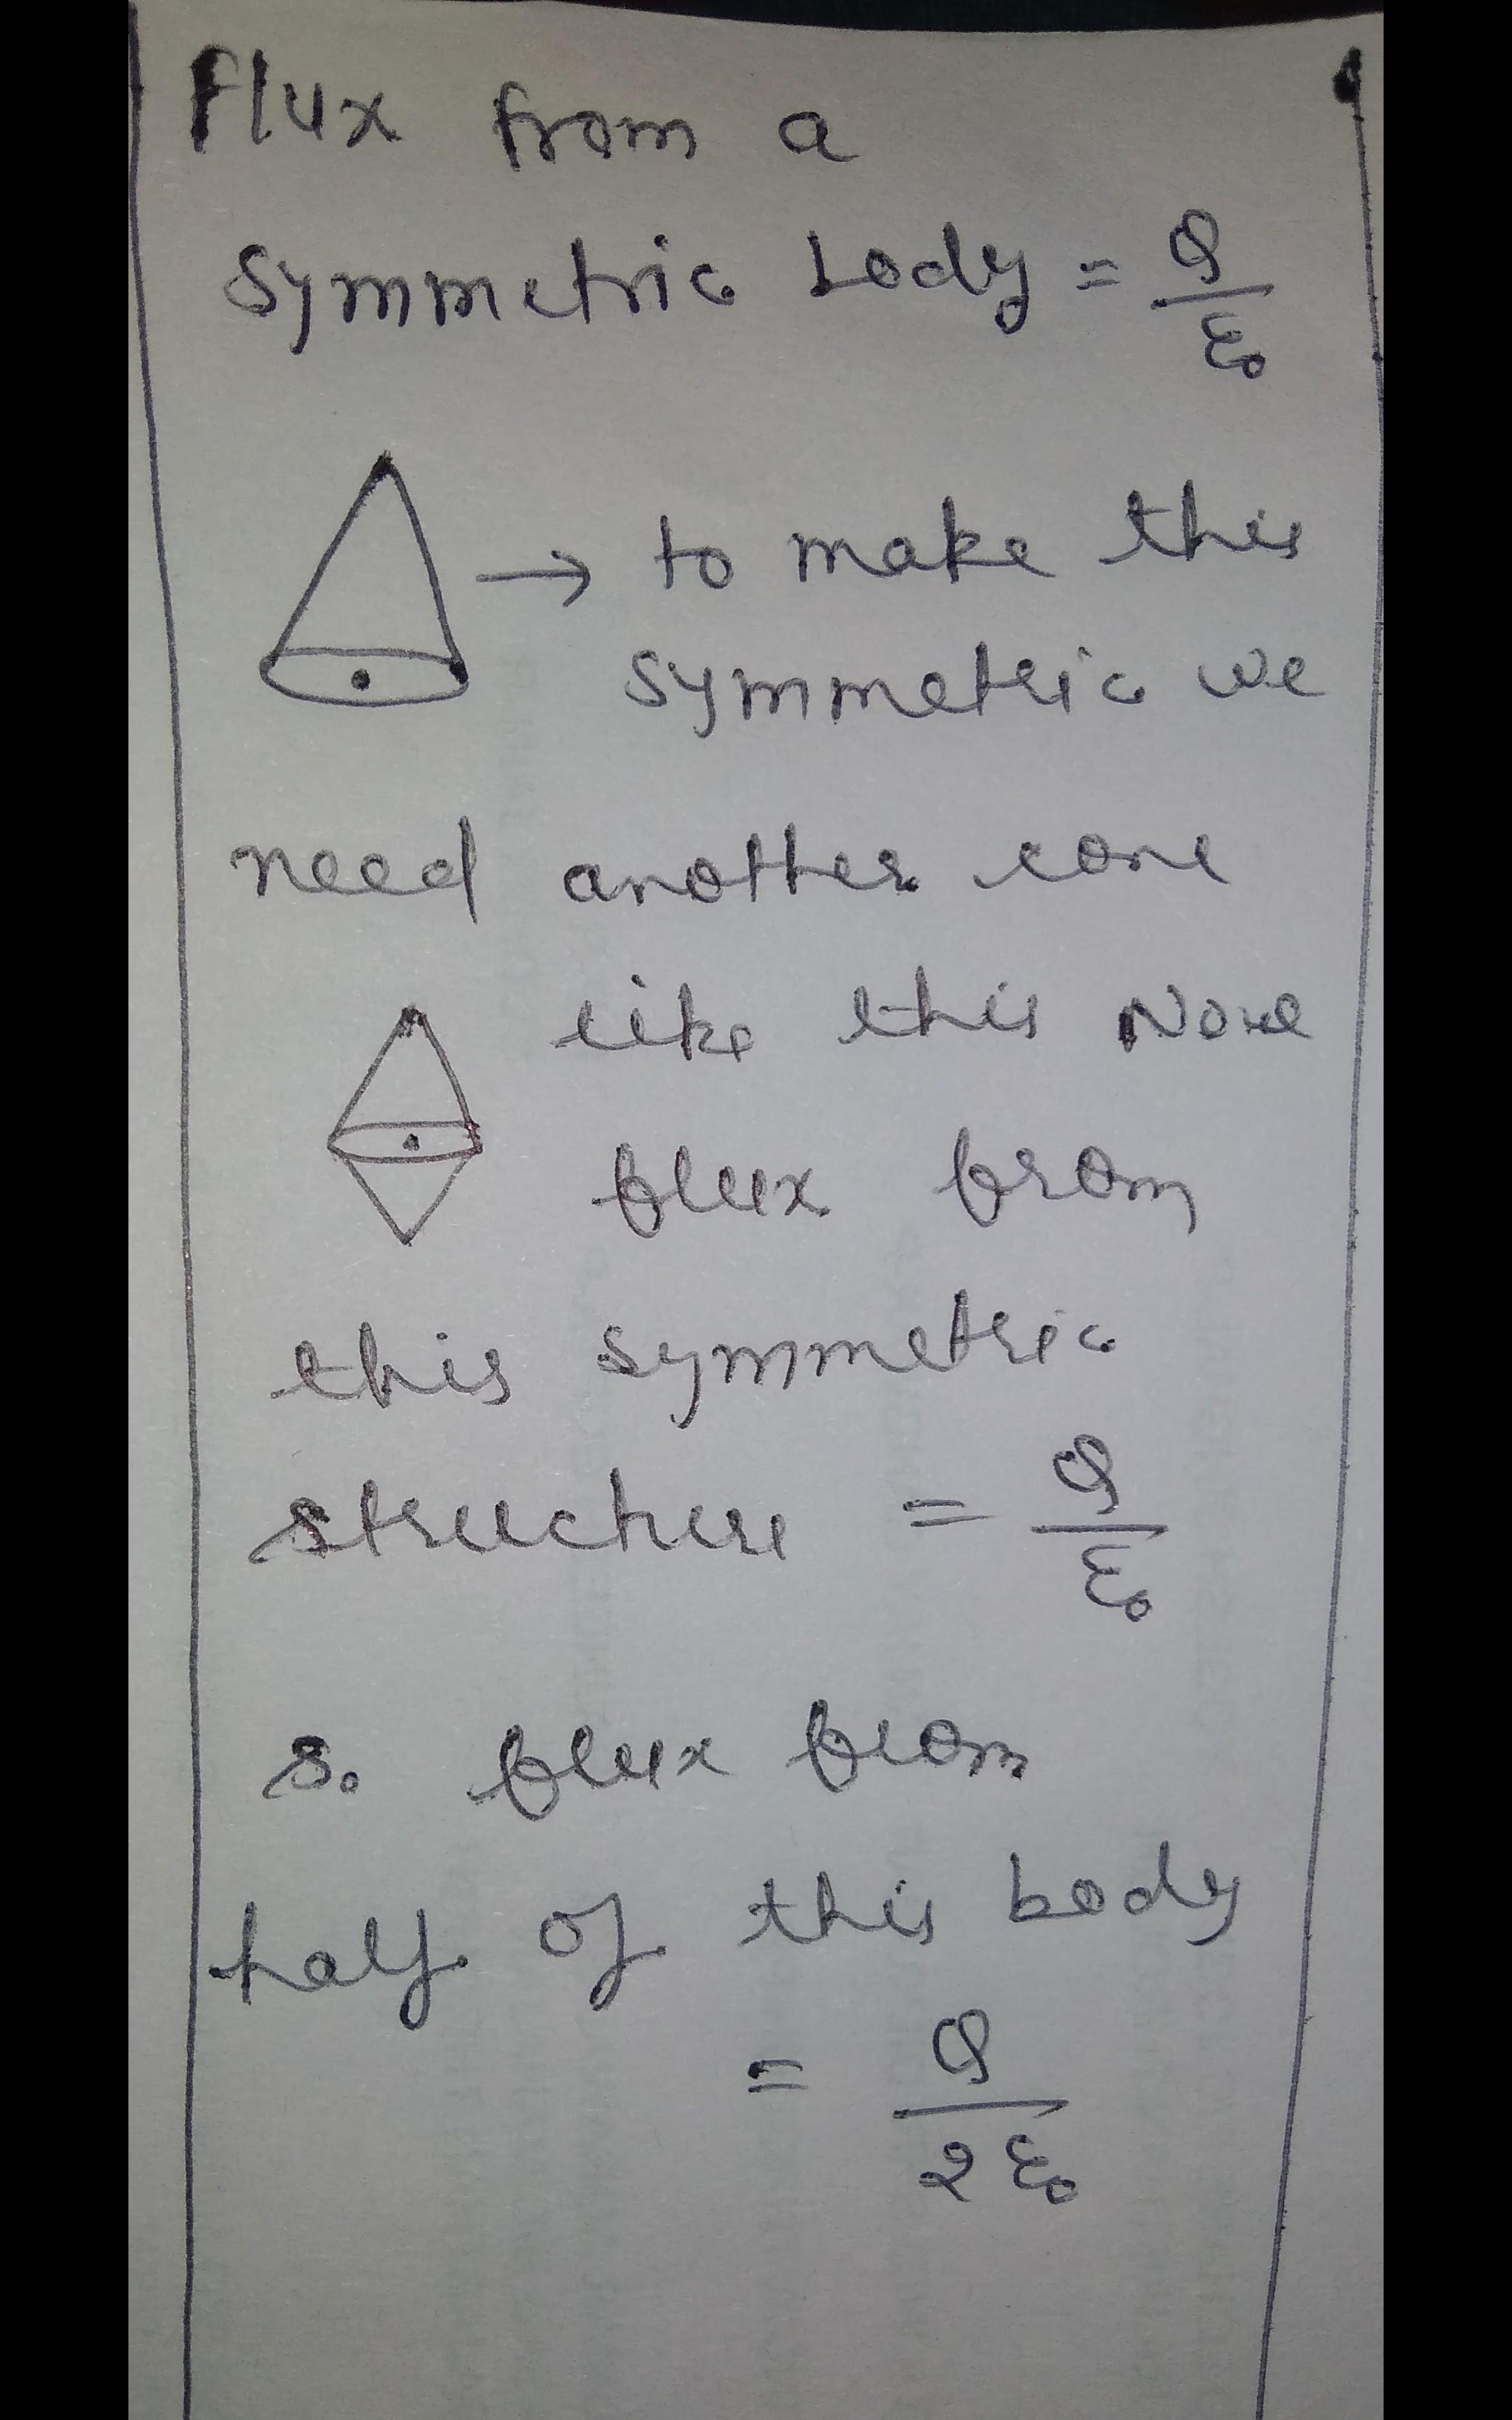 Flux from a
symmetric body = Q/ε₀
→ to make this
symmetric we
need another cone
like this Now
flux from
this symmetric
structure = Q/ε₀
So flux from
half of this body
= Q/2ε₀